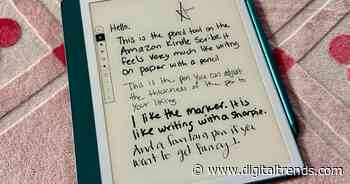 Hello,
This is the pencil tool on the
Amazon Kindle Scribe. It
feels very much like writing
on paper with a pencil
This is the pen. You can adjust
the thickness of the pen to
your liking.
I like the marker. It is
like writing with a Sharpie.
And a fountain pen if you
want to get fancy!
www.digitaltrends.com